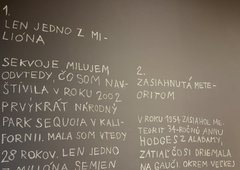 1.
LEN JEDNO Z MI-
LIÓNA
SEKVOJE MILUJEM
ODVTEDY, ČO SOM NAV-
ŠTÍVILA V ROKU 2002
PRVÝKRÁT NÁRODNÝ
PARK SEQUOIA V KALI-
FORNII. MALA SOM VTEDY
28 ROKOV. LEN JEDNO
Z MILIÓNA SEMIEN
2.
ZASIAHNUTÁ METE-
ORITOM
V ROKU 1954 ZASIAHOL ME-
TEORIT 34-ROČNÚ ANNU
HODGES Z ALABAMY,
ZATIAĽ ČO SI DRIEMALA
NA GAUČI OKREM VEĽKEJ